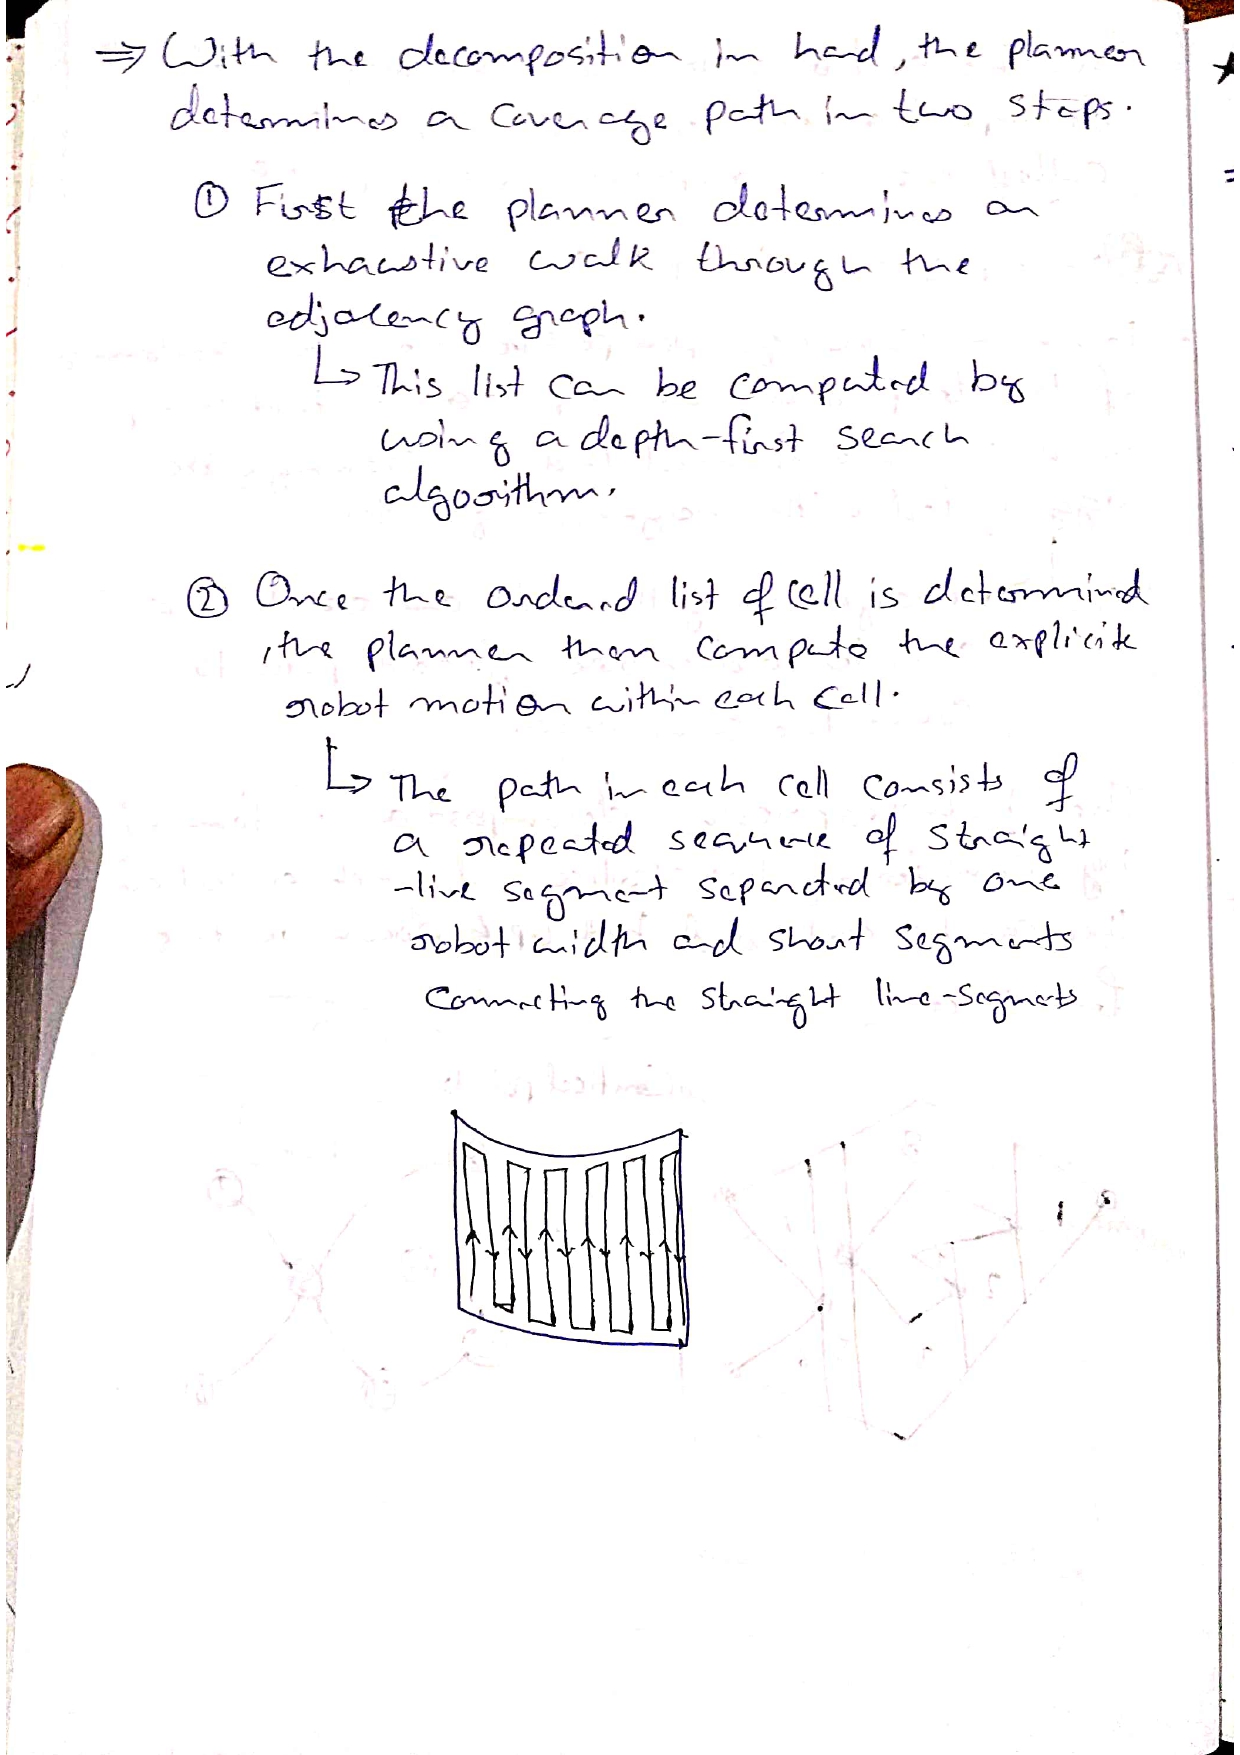 ⇒ With the decomposition in hand, the planner
determines a coverage path in two steps.
① First the planner determines an
exhaustive walk through the
adjacency graph.
↳ This list can be computed by
using a depth-first search
algorithm.
② Once the ordered list of cell is determined
, the planner then compute the explicite
robot motion within each cell.
↳ The path in each cell consists of
a repeated sequence of straight
-line segment separated by one
robot width and short segments
connecting the straight line-segments